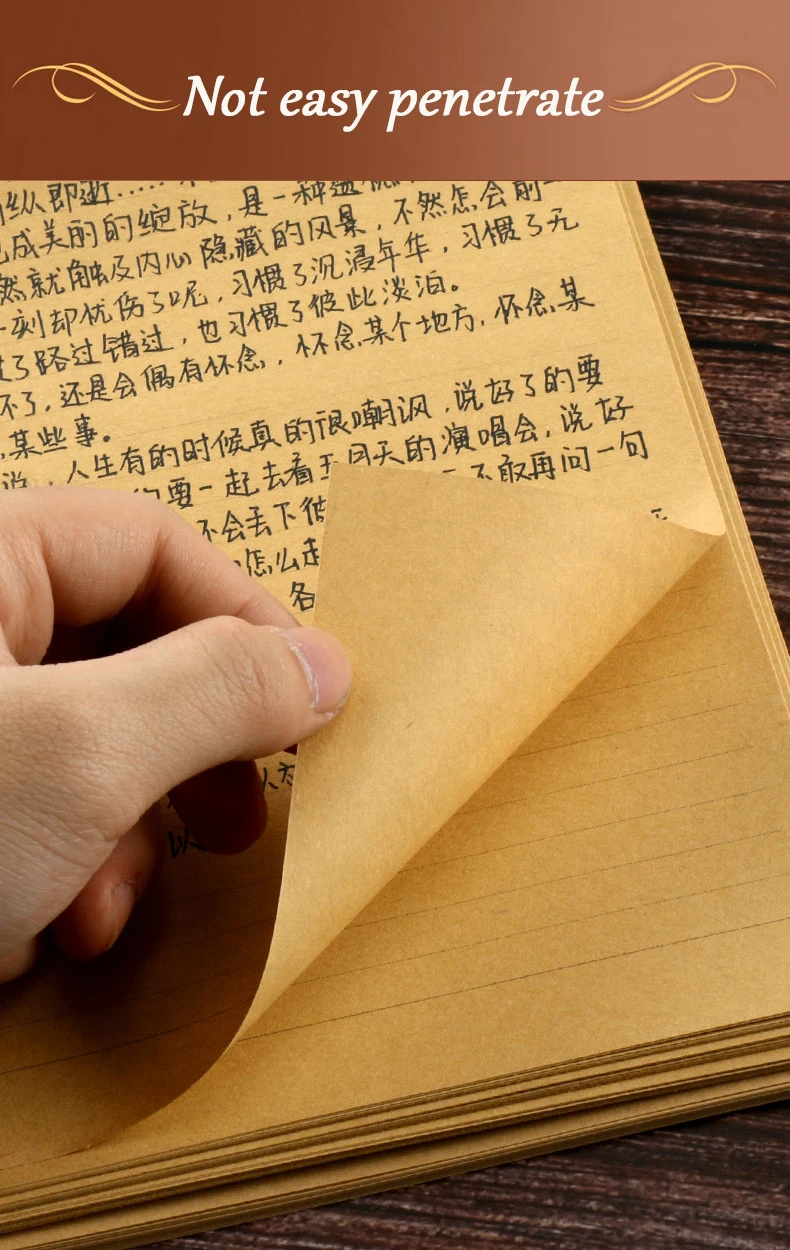 Not easy penetrate
纵即逝……
成美丽的绽放，是一种遗
然就触及内心隐藏的风景，不然怎会前一
一刻却忧伤了呢，习惯了沉浸年华，习惯了无
了路过错过，也习惯了彼此淡泊。
不了，还是会偶有怀念，怀念某个地方，怀念某
，某些事。
说，人生有的时候真的很嘲讽，说好了的要
要一起去看五月天的演唱会，说好
不会丢下彼 不敢再问一句
怎么走
各
以